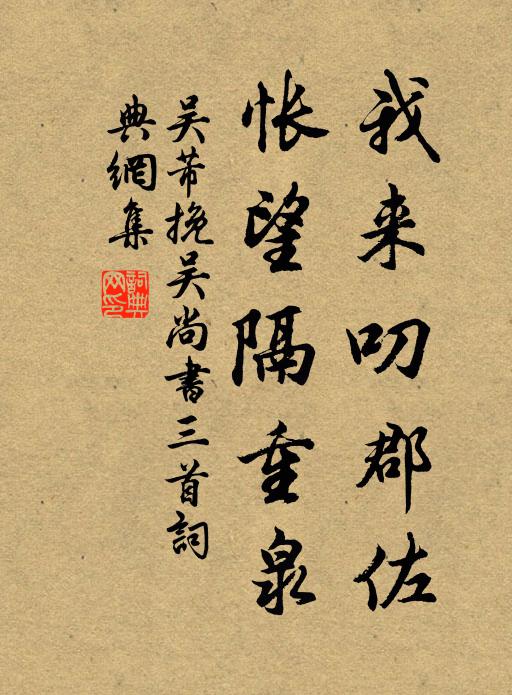 我来叨郡佐
怅望隔重泉
吴芾挽吴尚書三首詞
典網集
詞典
网印